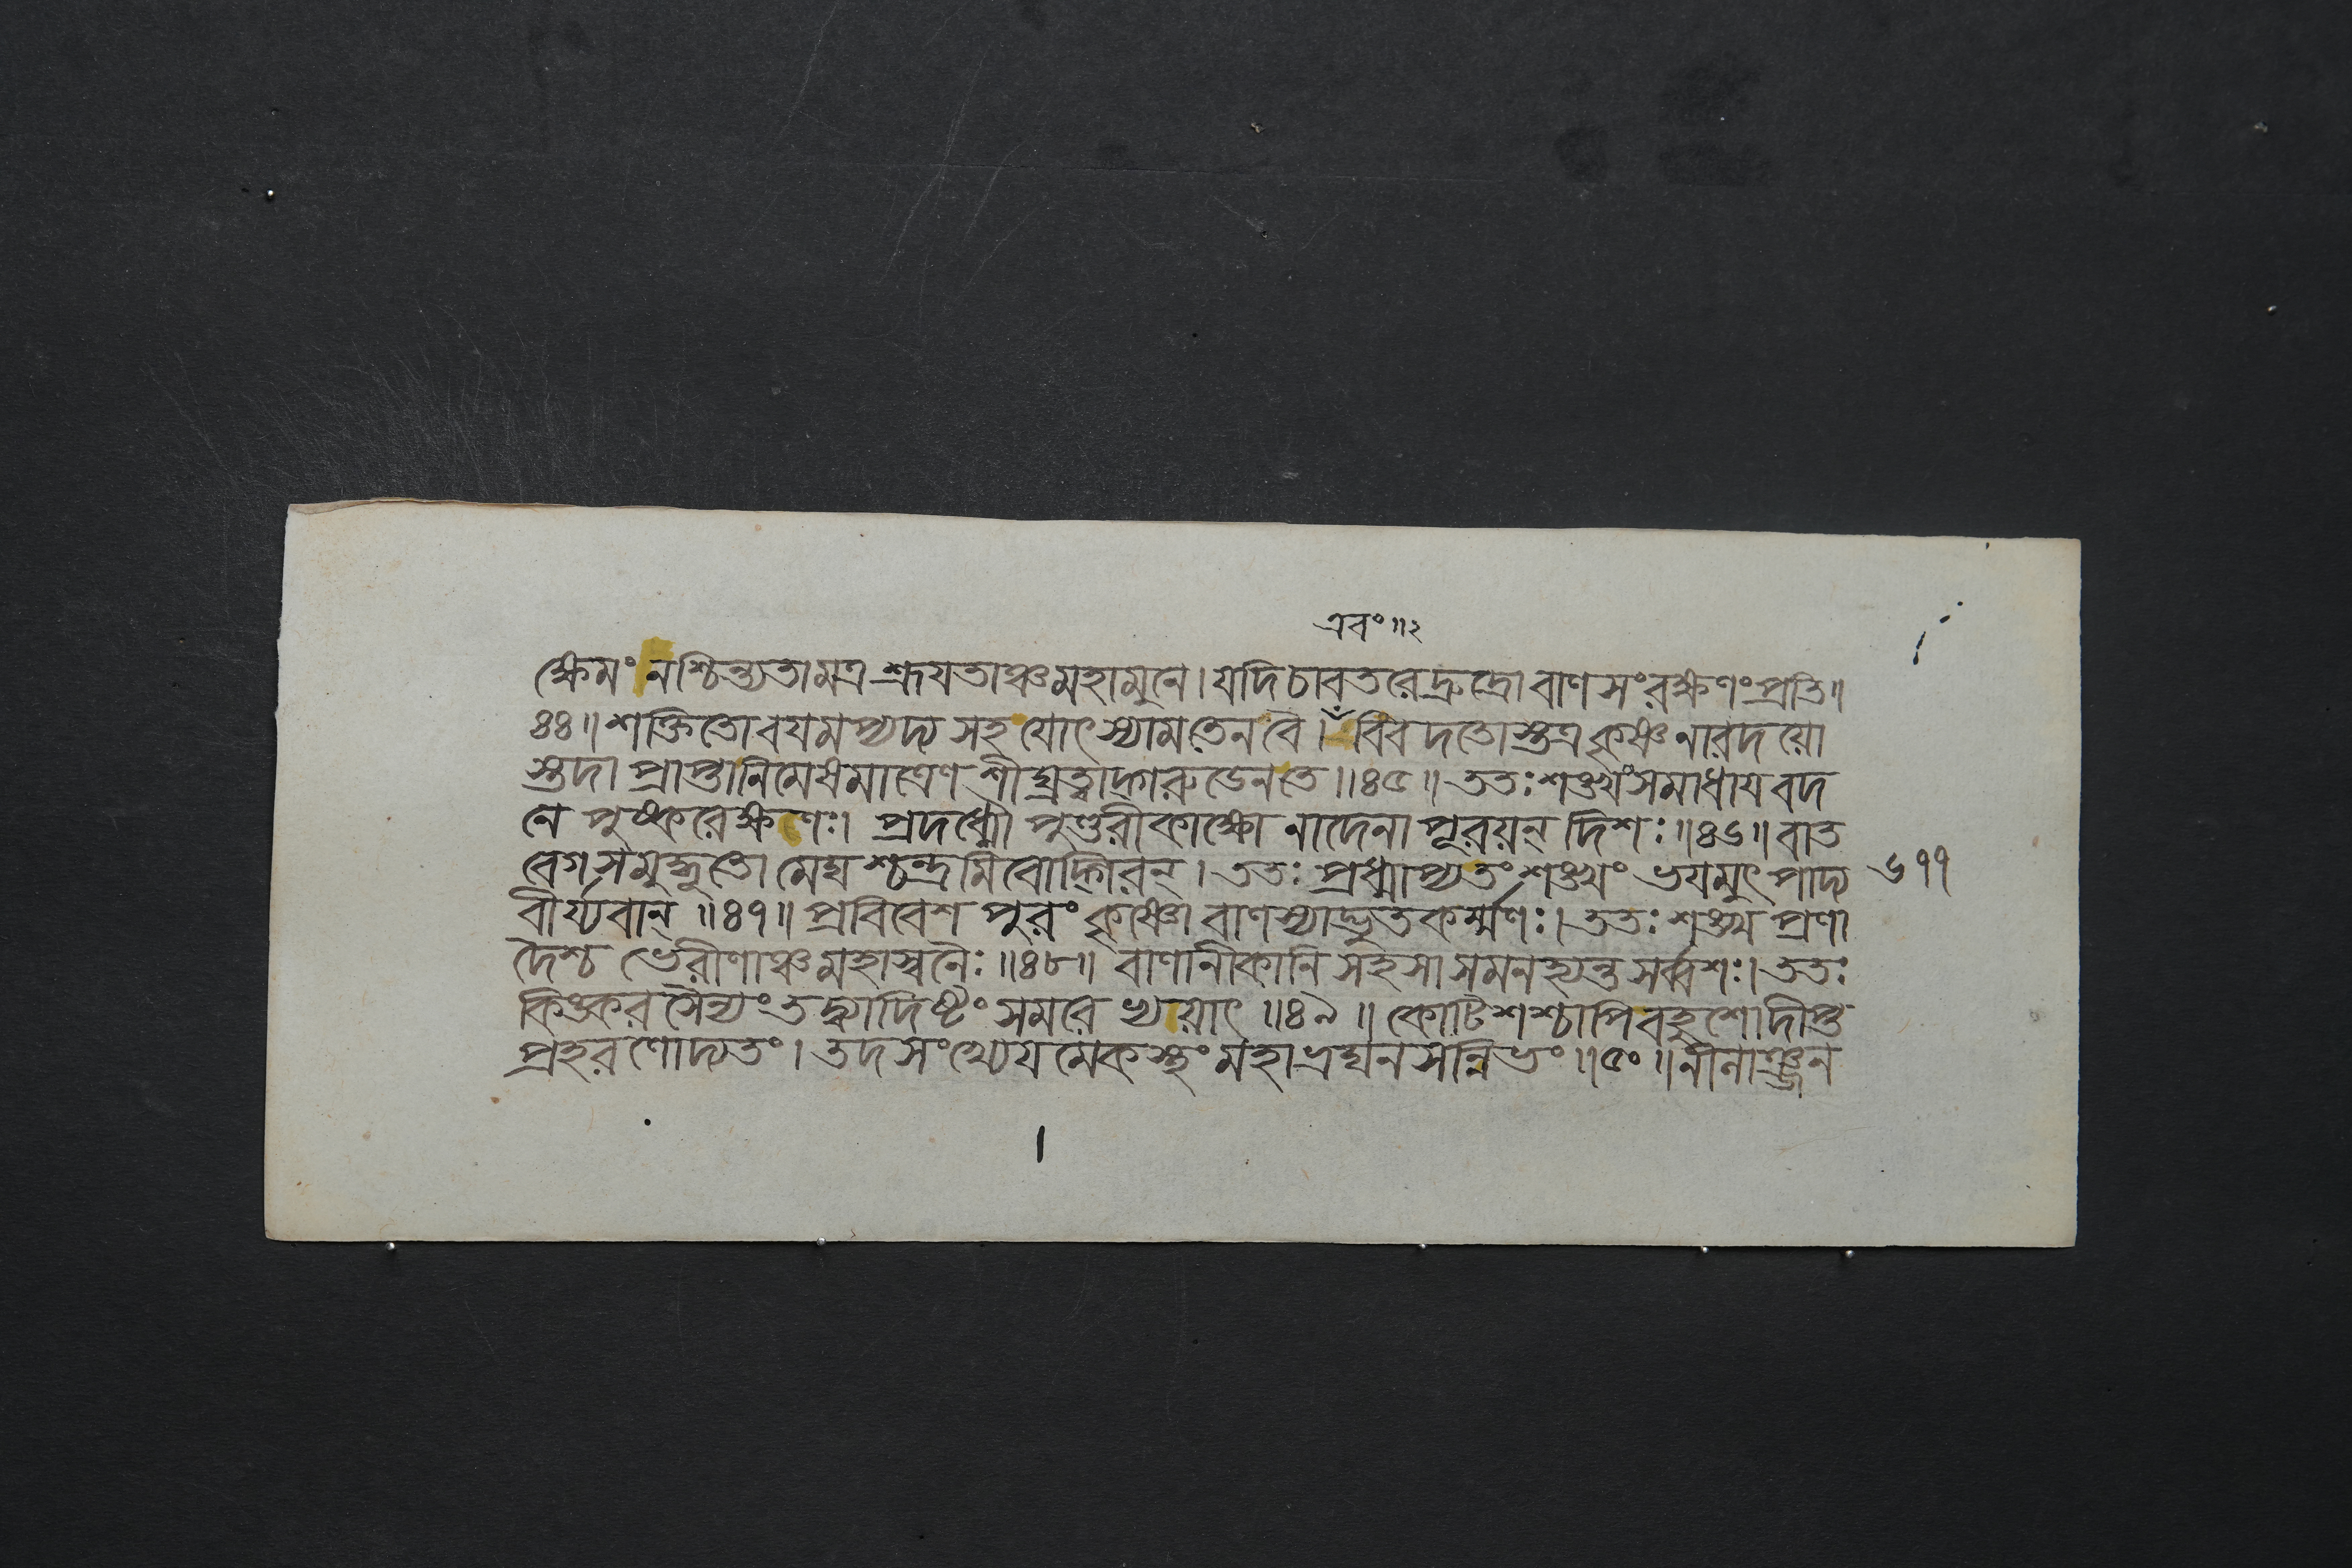 এবং॥২
ক্ষেমং নশ্চিন্ত্যতামত্র শ্রূযতাঞ্চ মহামুনে। যদি চাবতরেদ্রুদ্রো বাণসংরক্ষণং প্রতি॥
৪৪॥ শক্তিতো বযমপ্যদ্য সহ যোৎস্যাম তেন বৈ। বিবদতোস্তত্র কৃষ্ণনারদয়ো
স্তদা প্রাপ্তা নিমেষমাত্রেণ শীঘ্রত্বাদ্গারুডেন তে॥৪৫॥ ততঃ শঙ্খং সমাধায বদ
নে পুষ্করেক্ষণঃ। প্রদধ্মৌ পুণ্ডরীকাক্ষো নাদেনাপূরয়ন্ দিশঃ॥৪৬॥ বাত
বেগসমুদ্ভূতো মেঘশ্চন্দ্রমিবোদ্গিরন্। ততঃ প্রধ্মাপ্য তং শঙ্খং ভযমুৎপাদ্য
৬৭৭
বীর্য্যবান্॥৪৭॥ প্রবিবেশ পুরং কৃষ্ণো বাণস্যাদ্ভুতকর্ম্মণঃ। ততঃ শঙ্খপ্রণা
দৈশ্চ ভেরীণাঞ্চ মহাস্বনৈঃ॥৪৮॥ বাণানীকানি সহসা সমনহ্যন্ত সর্ব্বশঃ। ততঃ
কিঙ্করসৈন্যং তদ্ব্যাদিষ্টং সমরে ভয়াৎ॥৪৯॥ কোটিশশ্চাপি বহুশো দীপ্ত
প্রহরণোদ্যতং। তদসংখ্যেযমেকস্থং মহাভ্রঘনসন্নিভং॥৫০॥ নীলাঞ্জন